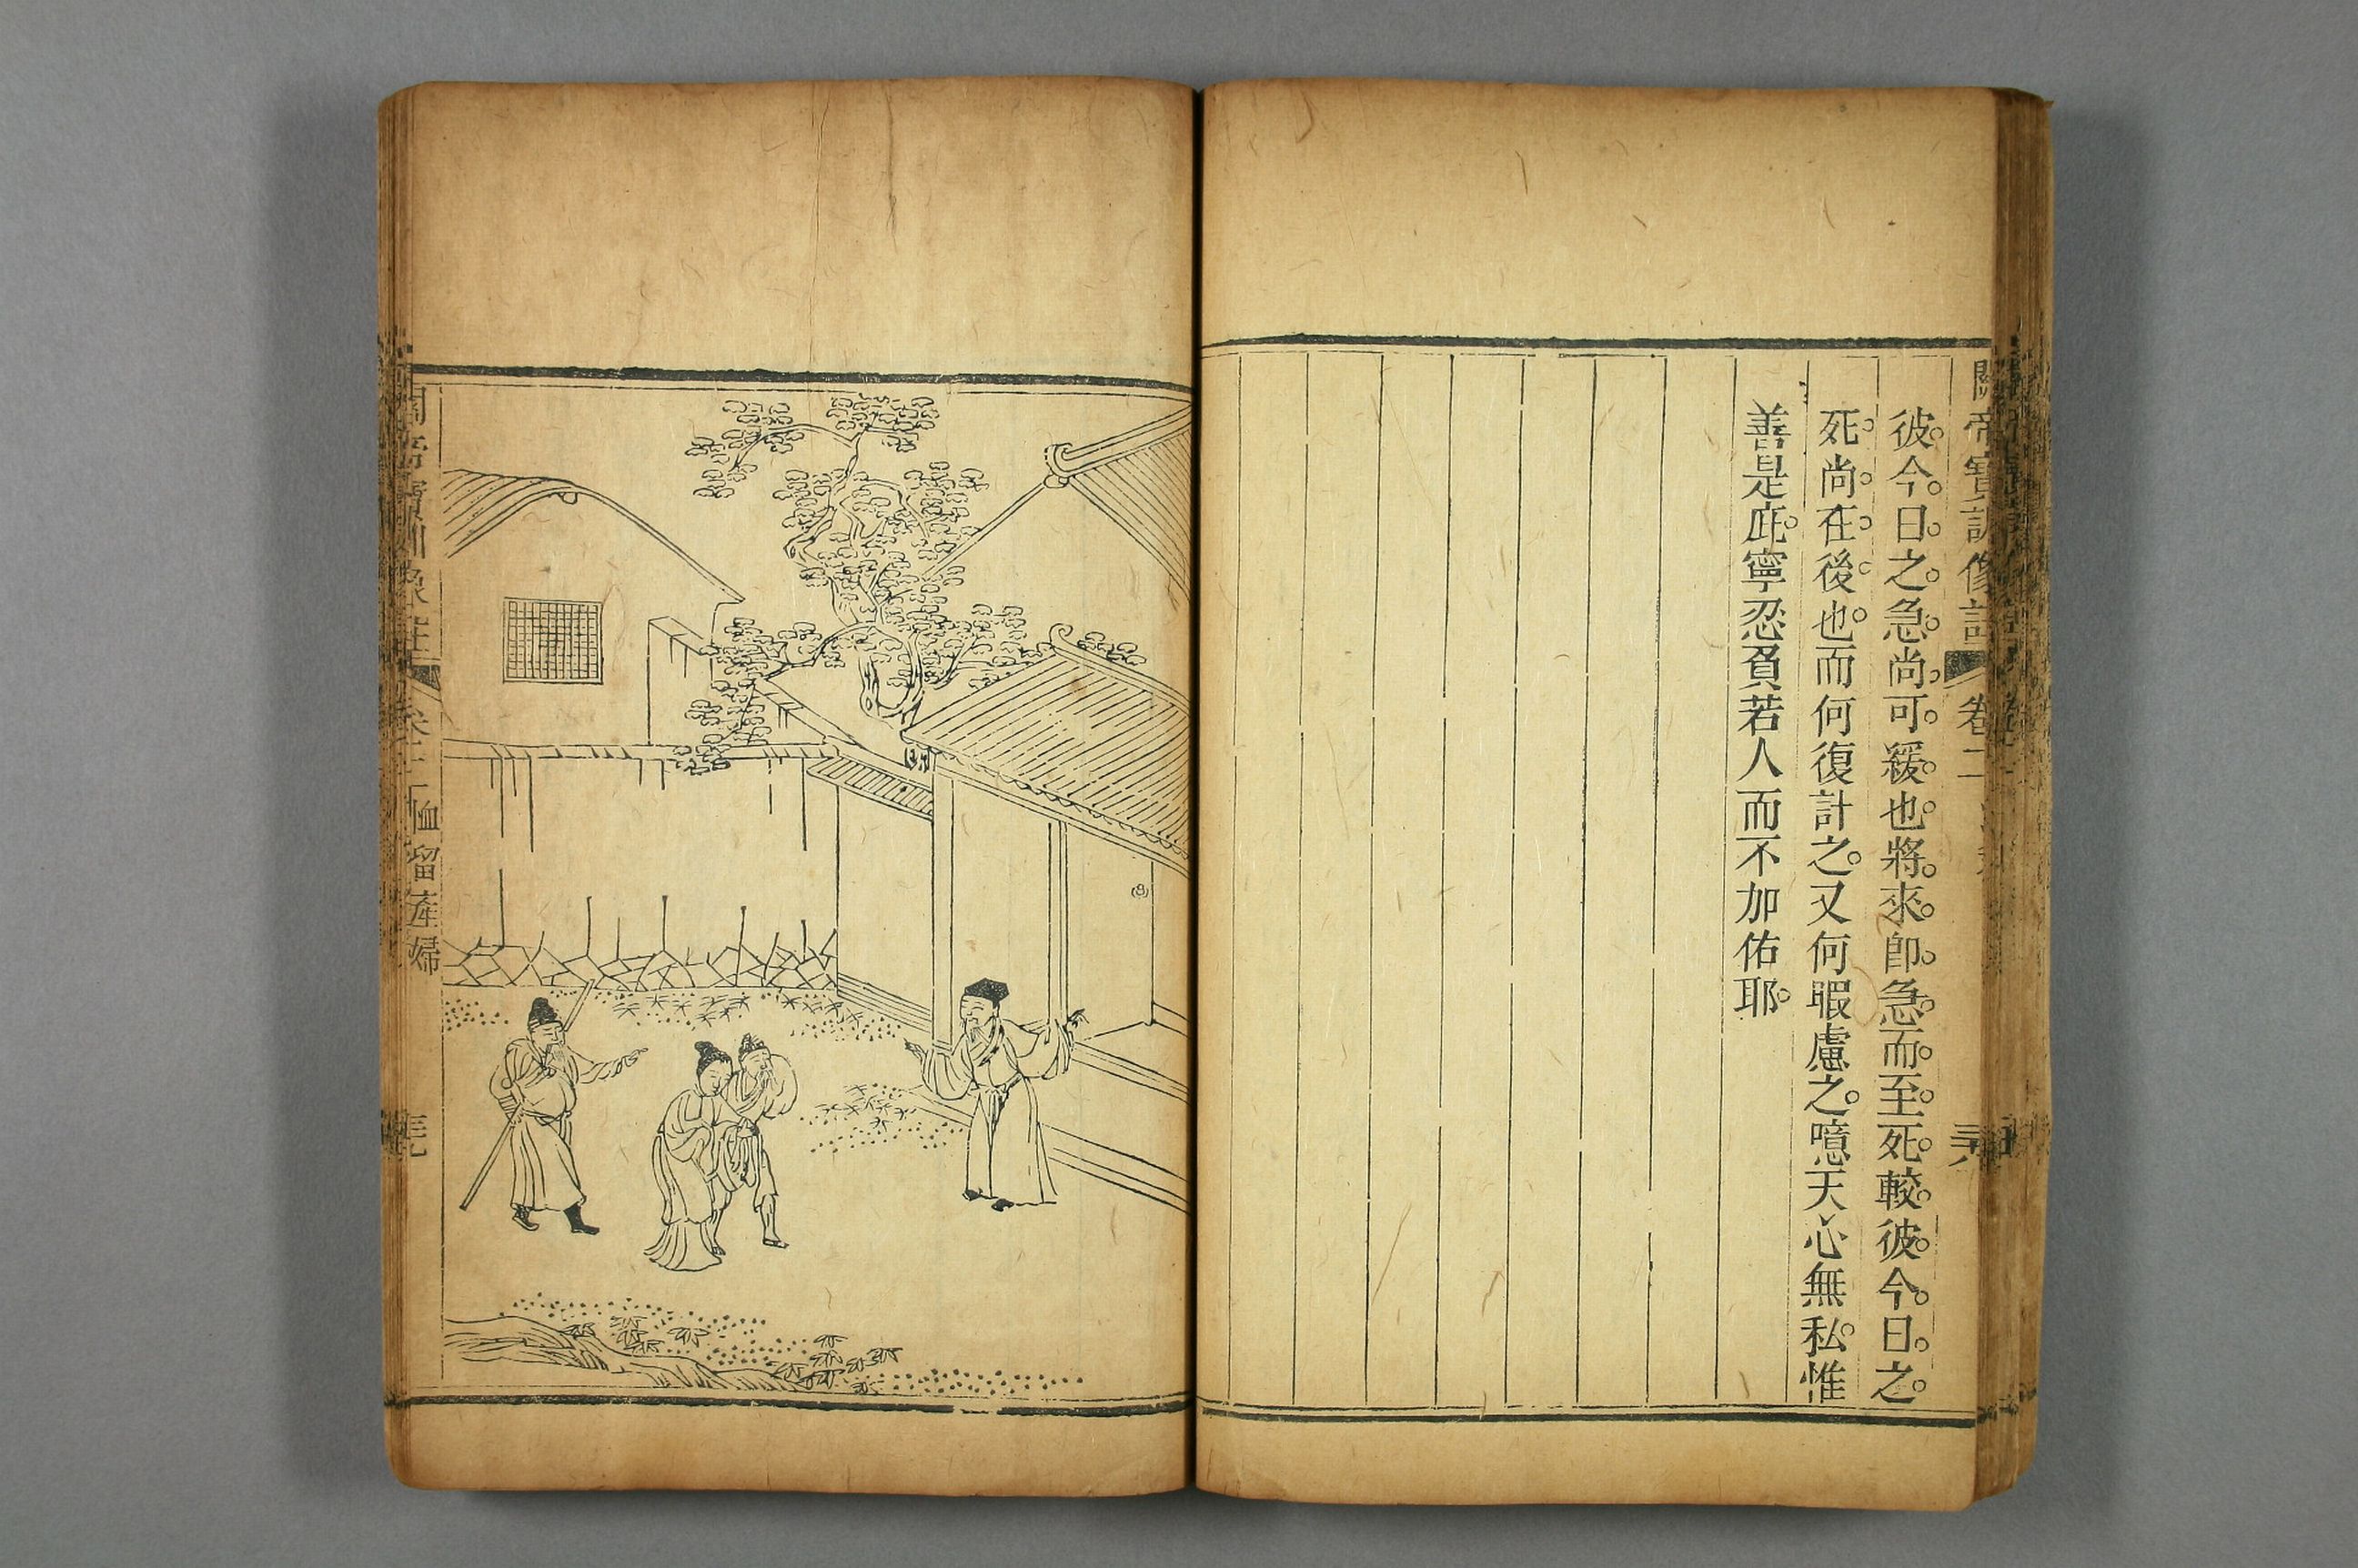 關帝寶訓像註 卷二
彼今日之急尚可緩也將來卽急而至死較彼今日之
死尚在後也而何復計之又何暇慮之噫天心無私惟
善是庇寧忍負若人而不加佑耶
關帝寶訓像註 卷二 恤留產婦